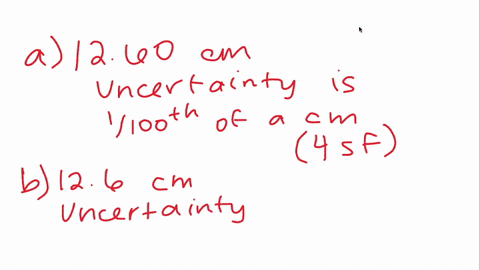 a) 12.60 cm
Uncertainty is
1/100th of a cm
(4 sf)
b) 12.6 cm
Uncertainty